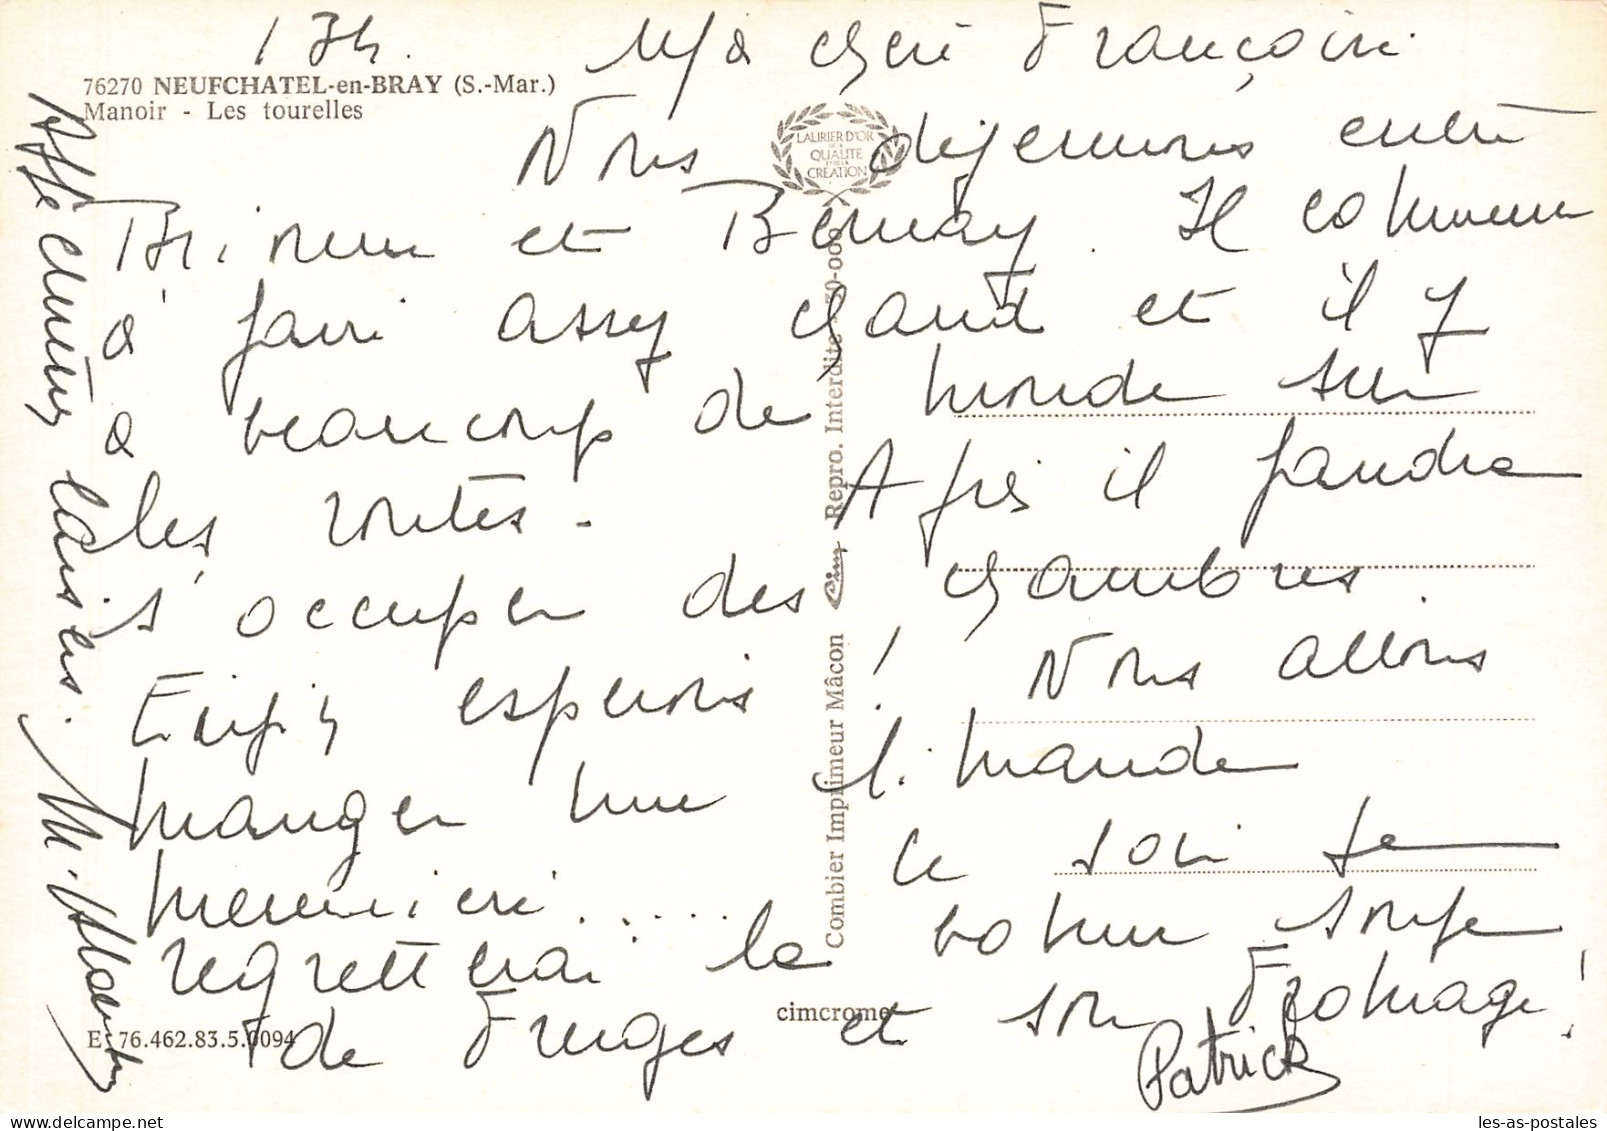 13h.
Ma chère Françoise
76270 NEUFCHATEL-en-BRAY (S.-Mar.)
Manoir - Les tourelles
LAURIER D'OR
DE LA
QUALITE
ET DE LA
CREATION
Nous déjeunons entre
Brionne et Bernay. Il commence
à faire assez chaud et il y
a beaucoup de monde sur
les routes. Après il faudra
s'occuper des chambres.
Enfin espérons ! Nous allons
manger une limande
meunière..... ce soir je
regretterai la bonne soupe
de Fruges et son fromage !
Patrick
Affectueux baisers. M.
Combier Imprimeur Mâcon Cim Repro. Interdite
cimcrome
E. 76.462.83.5.0094
les-as-postales